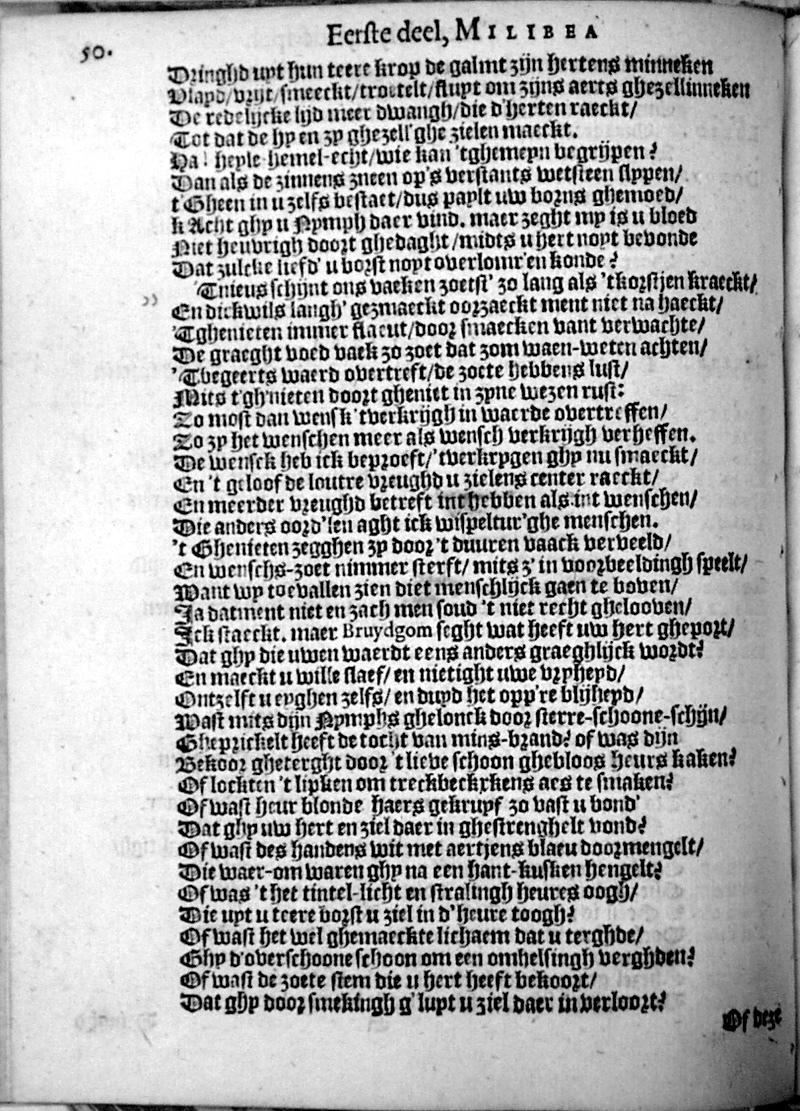 50.
Eerste deel, MILIBEA
Dringhd uyt hun teere krop de galmt zijn hertens minneken
Vlayd/vryt/smeeckt/troetelt/fluyt om zijns aerts ghezellinneken
De redelijcke lijd meer dwangh/die d'herten raeckt/
Tot dat de hy en zy ghezell'ghe zielen maeckt.
Ha! heyle hemel-echt/wie kan 'tghemeyn begrijpen?
Dan als de zinnens zneen op's verstants wetsteen slypen/
t'Gheen in u zelfs bestaet/dus paylt uw borns ghemoed/
k Acht ghy u Nymph daer vind. maer zeght my is u bloed
Niet heuvrigh doort ghedaght/midts u hert noyt bevonde
Dat zulcke liefd' u borst noyt overlomr'en konde?
Tnieus schijnt ons vaeken zoetst' zo lang als 'tkorstjen kraeckt/
En dickwils langh' gezmaeckt oorzaeckt ment niet na haeckt/
Tghenieten immer flaeut/door smaecken vant verwachte/
De graeght voed vaek zo zoet dat zom waen-weten achten/
'Tbegeerts waerd overtreft/de zoete hebbens lust/
Mits t'gh'nieten doort gheniet in zyne wezen rust:
Zo most dan wensk 'tverkrijgh in waerde overtreffen/
Zo zy het wenschen meer als wensch verkrijgh verheffen.
De wensck heb ick beproeft/'tverkrygen ghy nu smaeckt/
En 't geloof de loutre vreughd u zielens center raeckt/
En meerder vreughd betreft int hebben als int wenschen/
Die anders oord'len aght ick wispeltur'ghe menschen.
't Ghenieten zegghen zy door 't duuren vaack verveeld/
En wenschs-zoet nimmer sterft/ mits z' in voorbeeldingh speelt/
Want wy toevallen zien diet menschlijck gaen te boven/
Ja datment niet en zach men soud 't niet recht ghelooven/
Ick staeckt. maer Bruydgom seght wat heeft uw hert gheport/
Dat ghy die uwen waerdt eens anders graeghlijck wordt?
En maeckt u wille slaef/ en nietight uwe vryheyd/
Ontzelft u eyghen zelfs/ en duyd het opp're blijheyd/
Wast mits dijn Nymphs ghelonck door sterre-schoone-schijn/
Gheprickelt heeft de tocht van mins-brand? of was dijn
Bekoor gheterght door 't lieve schoon ghebloos heurs kaken?
Of lockten 't lipken om treckbeckxkens aes te smaken?
Of wast heur blonde haers gekruyf zo vast u bond'
Dat ghy uw hert en ziel daer in ghestrenghelt vond?
Of wast des handens wit met aertjens blaeu doormengelt/
Die waer-om waren ghy na een hant-kusken hengelt?
Of was 't het tintel-licht en stralingh heures oogh/
Die uyt u teere borst u ziel in d'heure toogh?
Of wast het wel ghemaeckte lichaem dat u terghde/
Ghy d'overschoone schoon om een omhelsingh verghden?
Of wast de zoete stem die u hert heeft bekoort/
Dat ghy door smekingh g'lupt u ziel daer in verloort?
Of deze